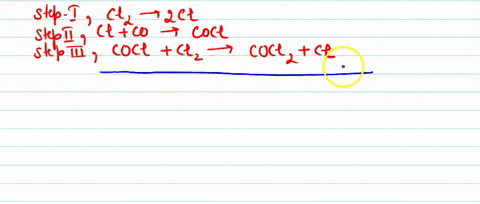 step-I, Cl₂ → 2Cl
step II, Cl + CO → COCl
step III, COCl + Cl₂ → COCl₂ + Cl